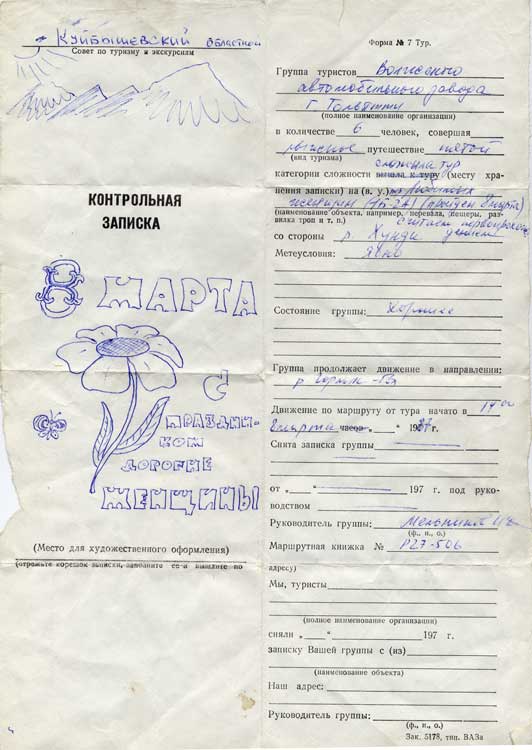 КУЙБЫШЕВСКИЙ областной
Совет по туризму и экскурсиям
КОНТРОЛЬНАЯ
ЗАПИСКА
8 МАРТА
С
ПРАЗДНИ-
КОМ
ДОРОГИЕ
ЖЕНЩИНЫ
(Место для художественного оформления)
(отрежьте корешок записки, заполните ее и вышлите по
Форма № 7 Тур.
Группа туристов Волжского
автомобильного завода
г. Тольятти
(полное наименование организации)
в количестве 6 человек, совершая
лыжное путешествие пятой
(вид туризма) сложила тур
категории сложности (месту хра-
нения записки) на (в. у.)
женщин (1Б-2А) (пройден 8 марта)
(наименование объекта, например, перевала, пещеры, раз-
вилка троп и т. п.) считаем
со стороны р.
Метеусловия: ясно
Состояние группы: Хорошее
Группа продолжает движение в направлении:
р.
Движение по маршруту от тура начато в 14 00
8 марта часов „ “ 1987 г.
Снята записка группы
от „ “ 197 г. под руко-
водством
Руководитель группы:
(ф., и., о.)
Маршрутная книжка № Р27-506
адресу)
Мы, туристы
(полное наименование организации)
сняли „ “ 197 г.
записку Вашей группы с (из)
(наименование объекта)
Наш адрес:
Руководитель группы:
(ф., и., о.)
Зак. 5178, тип. ВАЗа